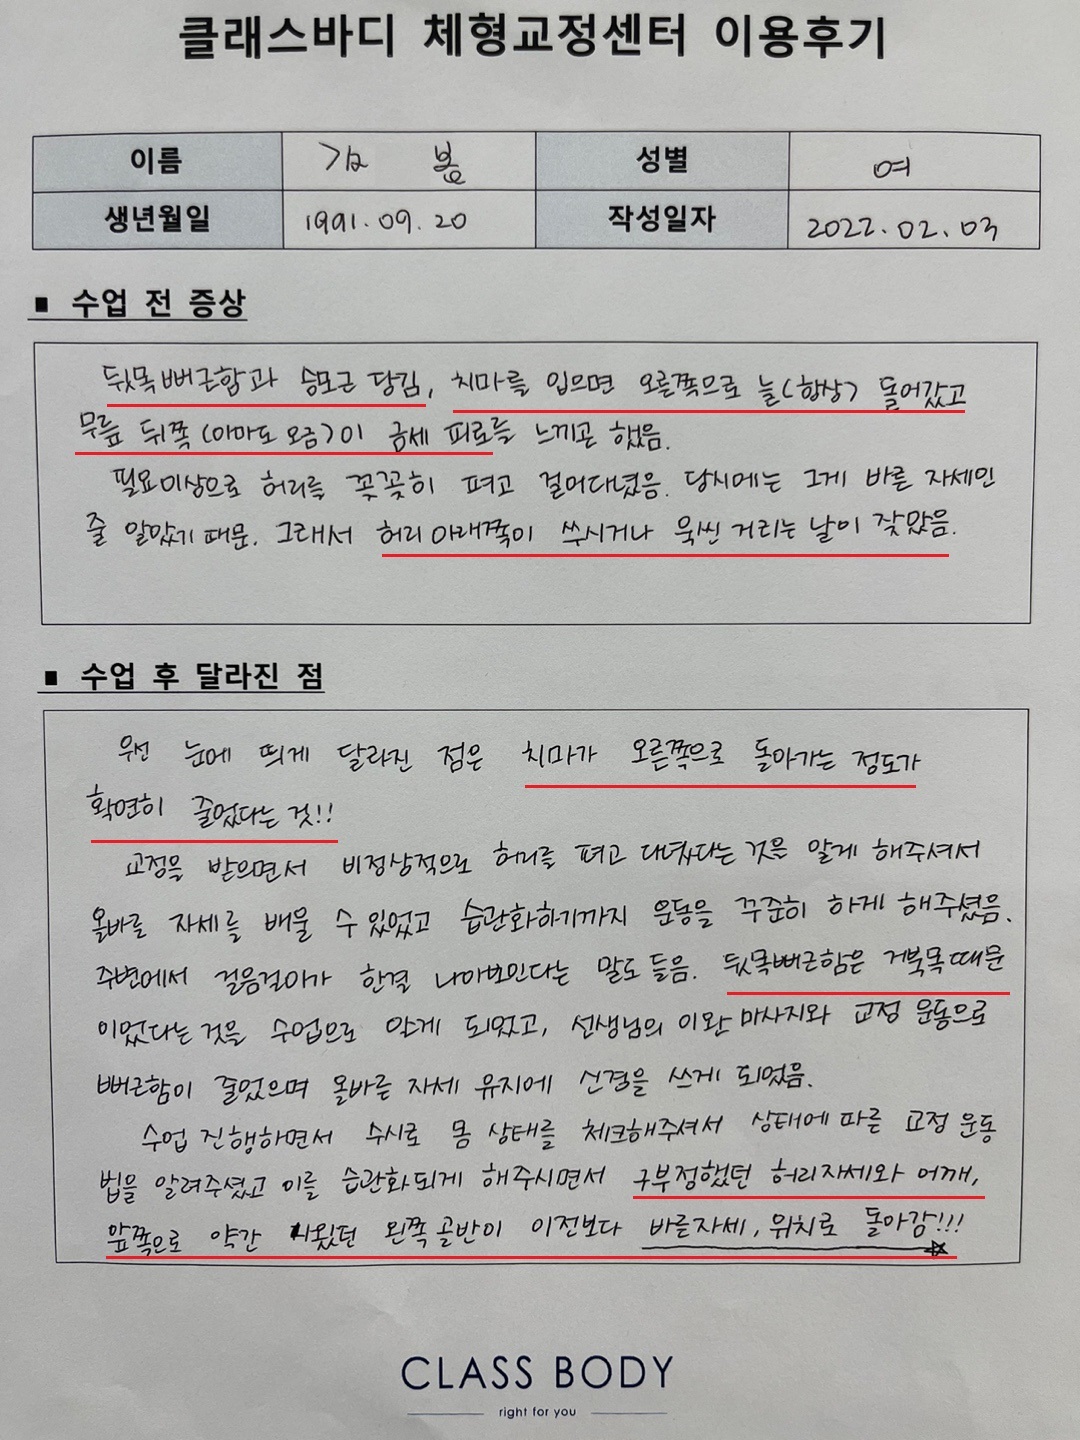 클래스바디 체형교정센터 이용후기
이름 김 봄 성별 여
생년월일 1991.09.20 작성일자 2022.02.03
■ 수업 전 증상
뒷목뻐근함과 승모근 당김, 치마를 입으면 오른쪽으로 늘(항상) 돌어갔고
무릎 뒤쪽(아마도 오금)이 금세 피로를 느끼곤 했음.
필요이상으로 허리를 꼿꼿히 펴고 걸어다녔음. 당시에는 그게 바른 자세인
줄 알았기 때문. 그래서 허리 아래쪽이 쑤시거나 욱씬 거리는 날이 잦았음.
■ 수업 후 달라진 점
우선 눈에 띄게 달라진 점은 치마가 오른쪽으로 돌아가는 정도가
확연히 줄었다는 것!!
교정을 받으면서 비정상적으로 허리를 펴고 다녔다는 것을 알게 해주셔서
올바른 자세를 배울 수 있었고 습관화하기까지 운동을 꾸준히 하게 해주셨음.
주변에서 걸음걸이가 한결 나아보인다는 말도 들음. 뒷목뻐근함은 거북목때문
이었다는 것을 수업으로 알게 되었고, 선생님의 이완 마사지와 교정 운동으로
뻐근함이 줄었으며 올바른 자세 유지에 신경을 쓰게 되었음.
수업 진행하면서 수시로 몸 상태를 체크해주셔서 상태에 따른 교정 운동
법을 알려주셨고 이를 습관화되게 해주시면서 구부정했던 허리자세와 어깨,
앞쪽으로 약간 나왔던 왼쪽 골반이 이전보다 바른자세, 위치로 돌아감!!!
CLASS BODY
right for you